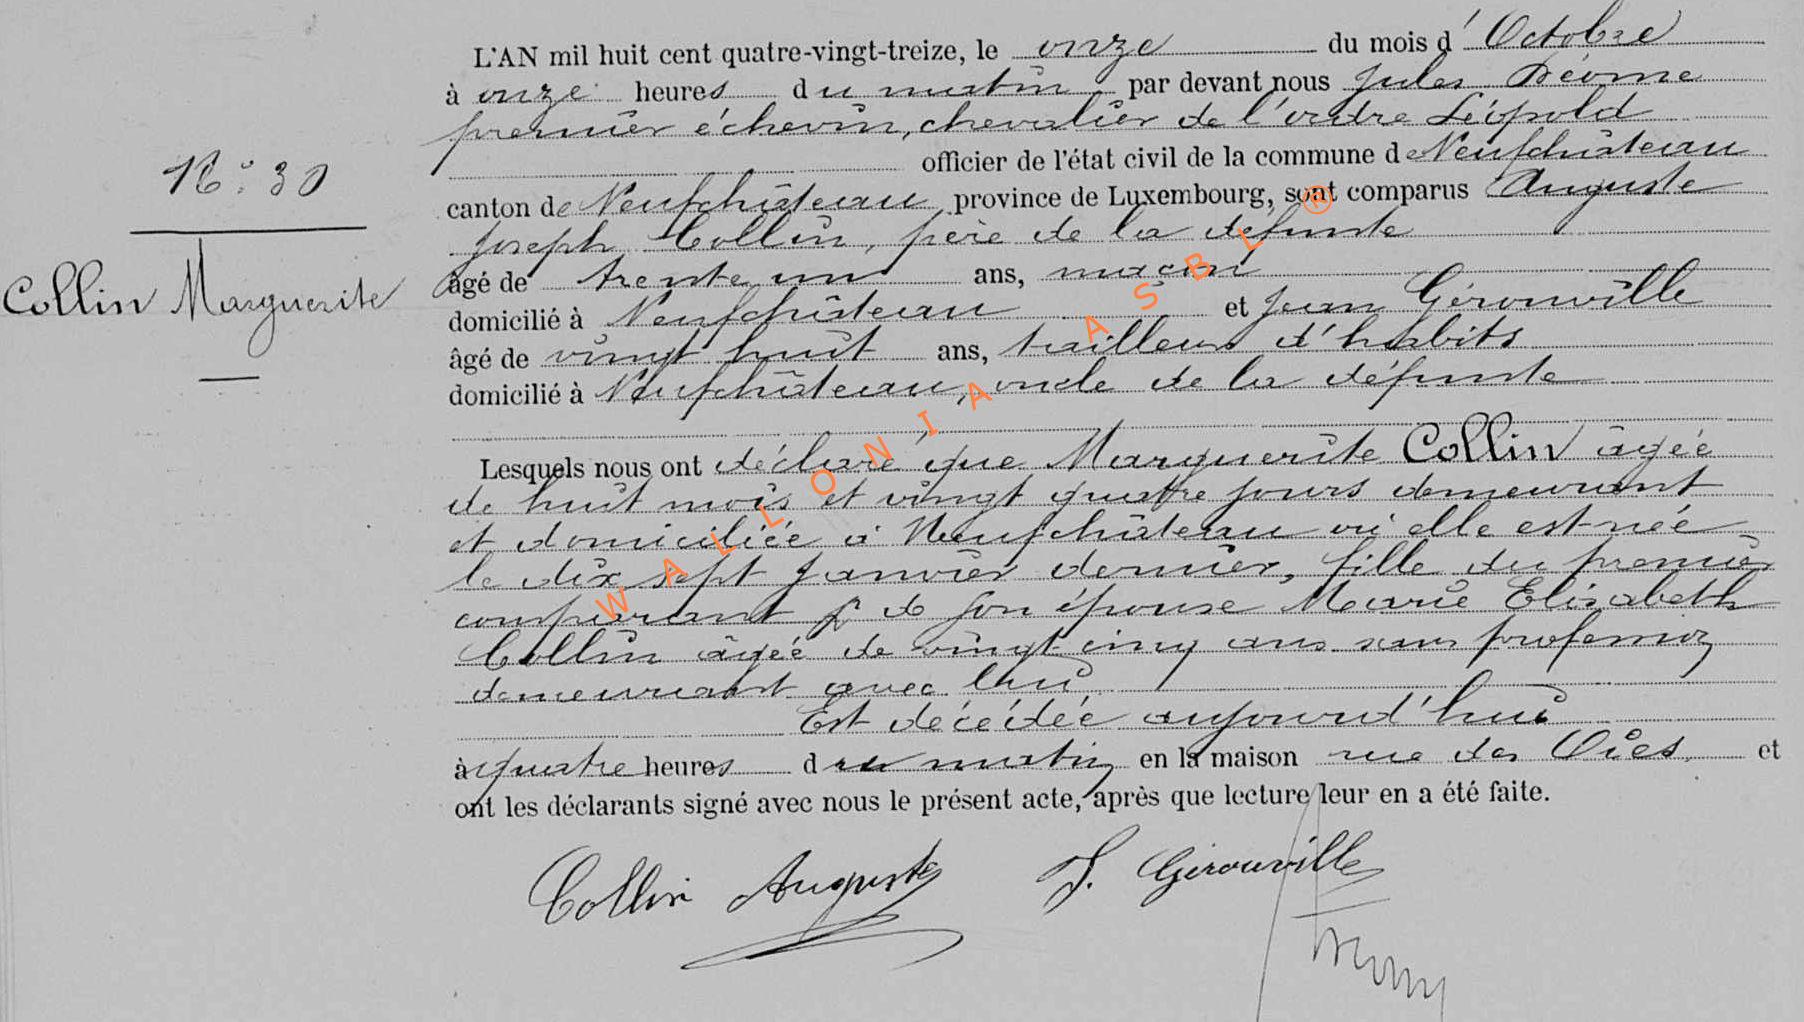 L'AN mil huit cent quatre-vingt-treize, le onze du mois d'Octobre
à onze heures du matin par devant nous Jules Déome
premier échevin, chevalier de l'ordre Léopold
officier de l'état civil de la commune de Neufchâteau
N° 30
canton de Neufchâteau province de Luxembourg, sont comparus Auguste
Joseph Collin, père de la défunte
Collin Marguerite
âgé de trente un ans, maçon
domicilié à Neufchâteau et Jean Gérouville
âgé de vingt huit ans, tailleur d'habits
domicilié à Neufchâteau, oncle de la défunte
Lesquels nous ont déclaré que Marguerite Collin âgée
de huit mois et vingt quatre jours demeurant
et domiciliée à Neufchâteau où elle est née
le dix sept Janvier dernier, fille du premier
comparant & de son épouse Marie Elisabeth
Collin âgée de vingt cinq ans sans profession
demeurant avec lui
Est décédée aujourd'hui
à quatre heures du matin en la maison rue des Oies et
ont les déclarants signé avec nous le présent acte, après que lecture leur en a été faite.
Collin Auguste J. Gérouville
WALLONIA ASBL ®